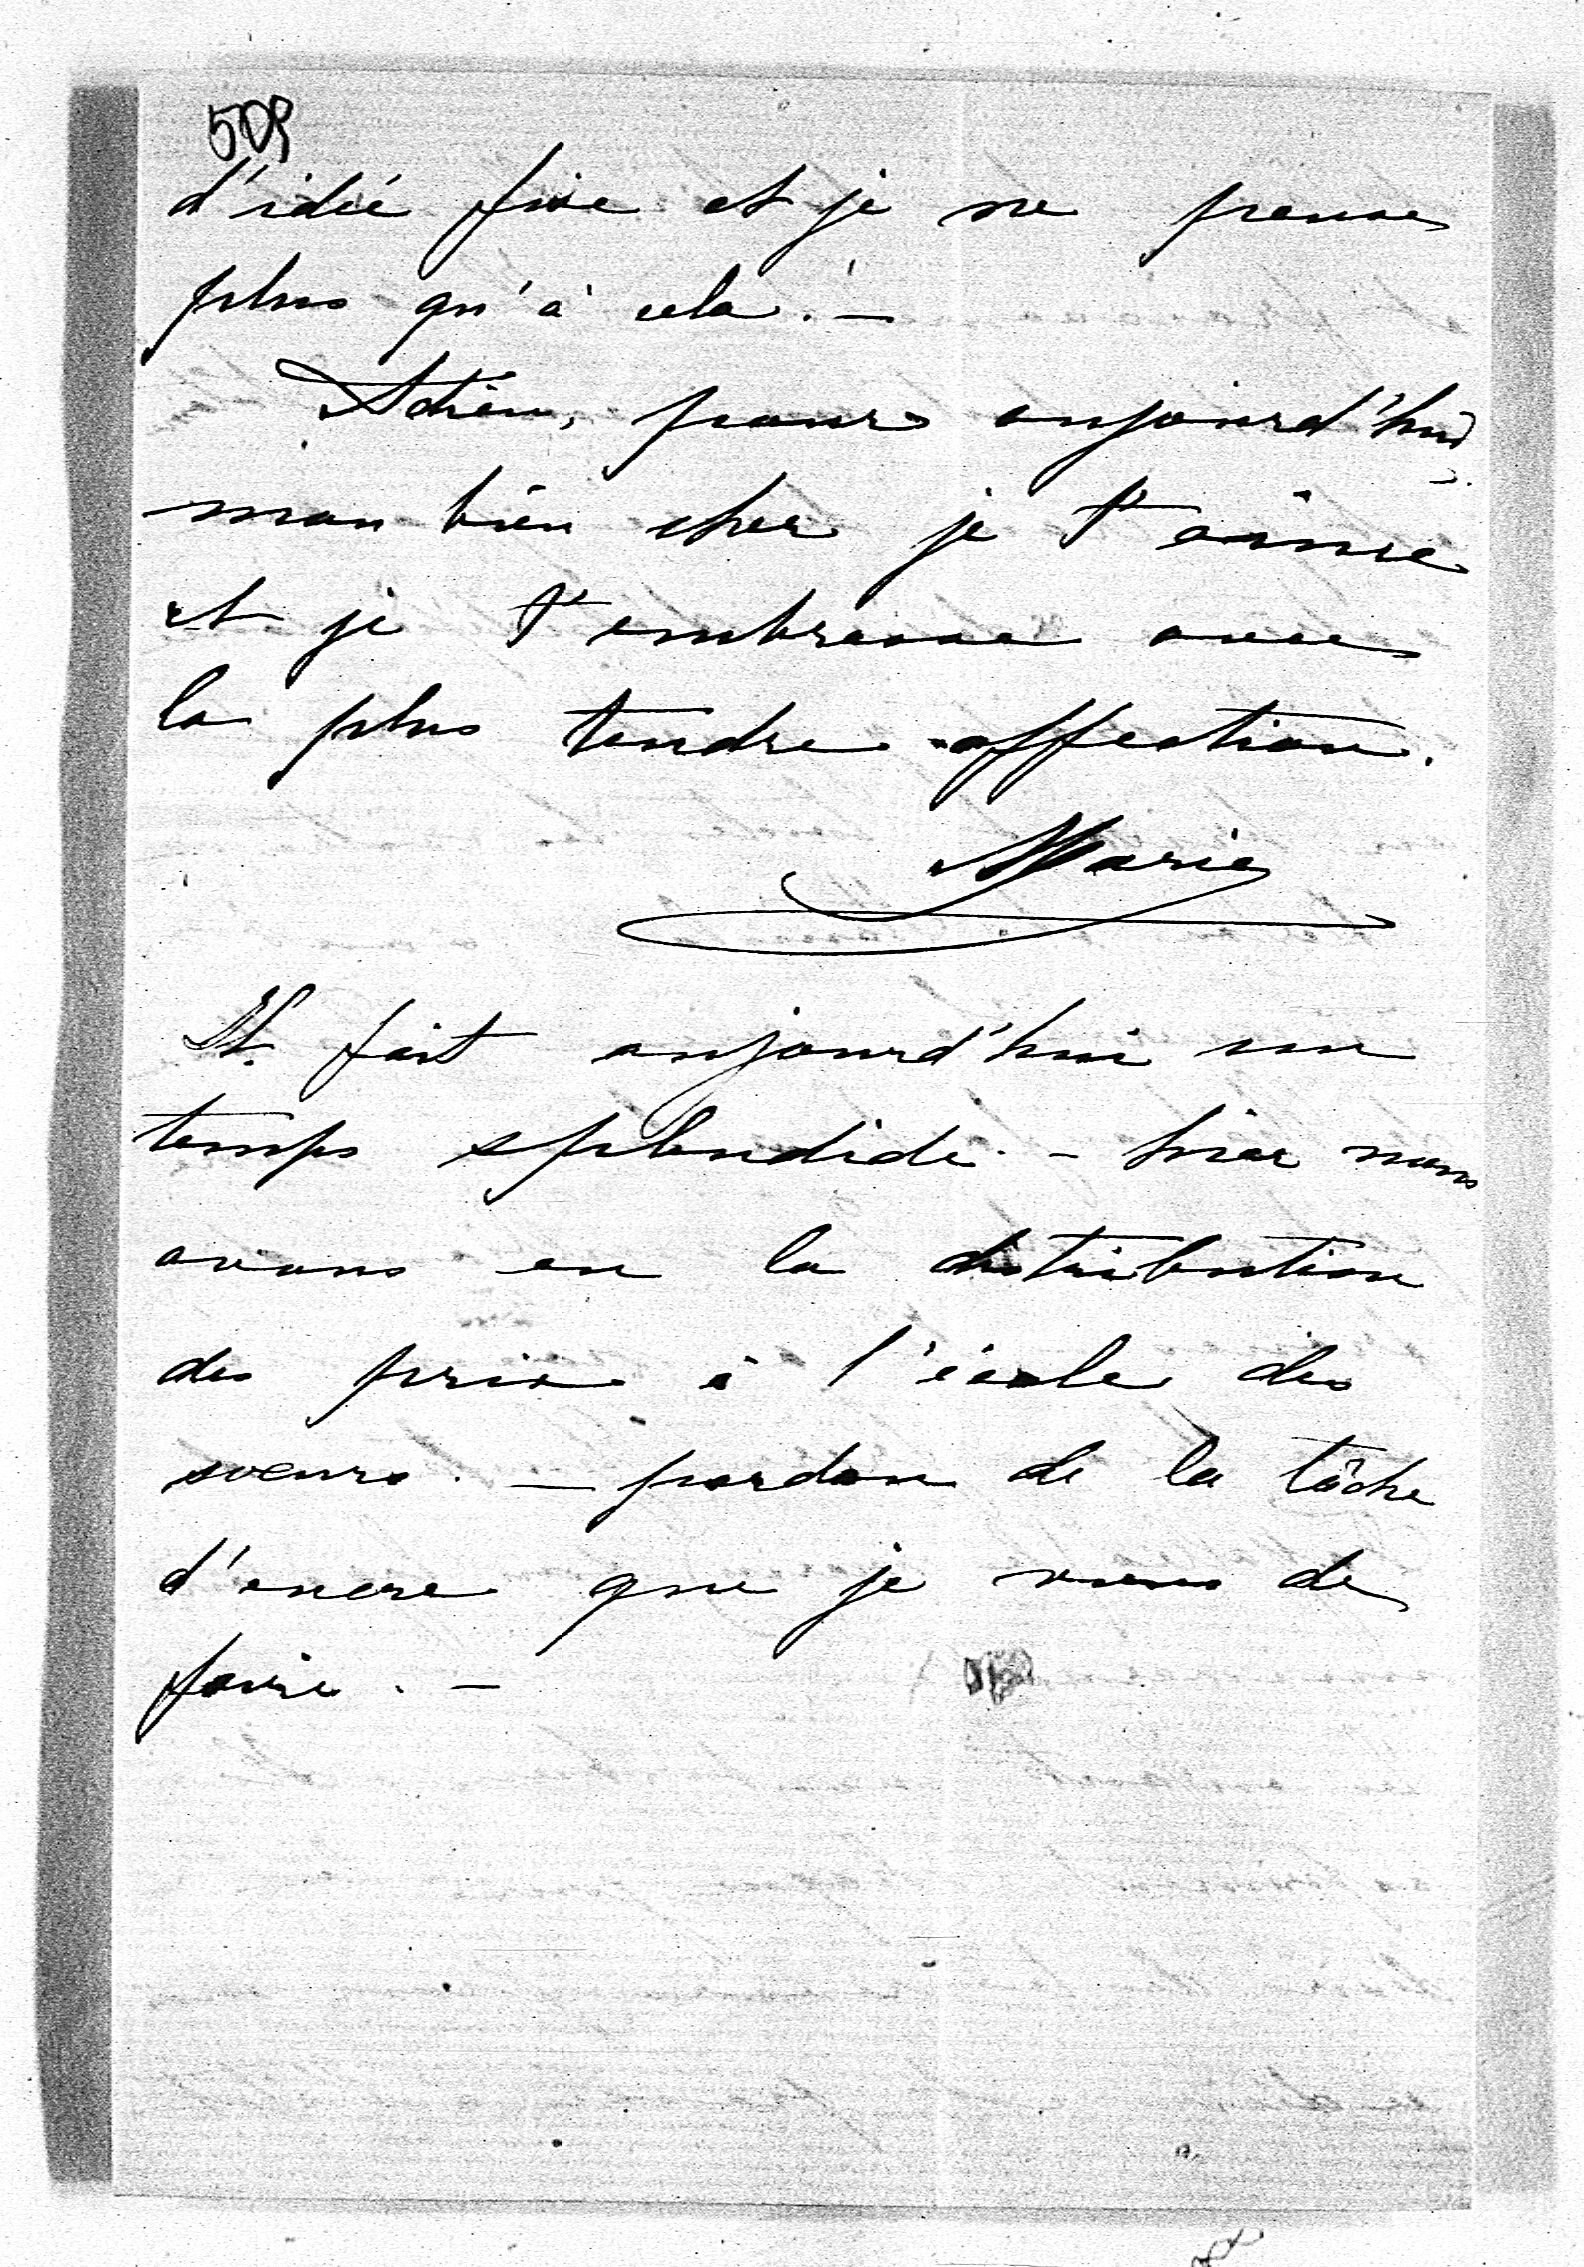 509
d'idée fixe et je ne pense
plus qu'à cela. -
Adieu, pour aujourd'hui
mon bien cher je t'aime
et je t'embrasse avec
la plus tendre affection.
Marie
Il fait aujourd'hui un
temps splendide. - hier nous
avons eu la distribution
des prix à l'école des
soeurs. - pardon de la tâche
d'encre que je viens de
faire. -